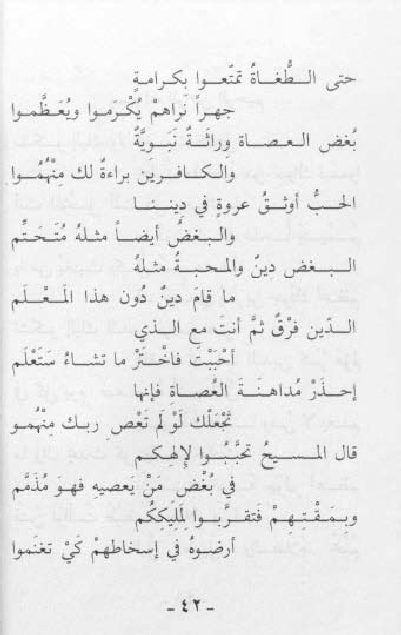 حتى الطُّغاةُ تمتّعوا بكرامةٍ
جهراً نَراهمْ يُكْرَموا ويُعَظَّموا
بُغض العصاة وراثةٌ نَبَويَّةٌ
والكافرين براءةٌ لك منْهُمُوا
الحَبُّ أوثقُ عروةٍ في دِيننا
والبغضُ أيضاً مثلهُ مُتَحَتِّم
البغض دينٌ والمحبةُ مثلهُ
ما قامَ دينٌ دُون هذا المَعْلَم
الدّين فرْقٌ ثمَّ أنتَ مع الذي
أحْبَبْتَ فاخْتَرْ ما تشاءُ سَتَعْلَم
إحذَرْ مُداهنَةَ العُصاةِ فإنها
تَجْعَلْك لَوْ لم تَعْصِ ربك مِنْهُمو
قال المسيحُ تحبَّبُوا لإلهِكم
في بُغْضِ مَنْ يَعصيهِ فهوَ مُذَمَّم
وبمَقْتِهمْ فَتقرَّبوا لمَلِيكِكُم
أرضَوهُ في إسْخاطهمْ كَيْ تغنَموا
- ٤٢ -